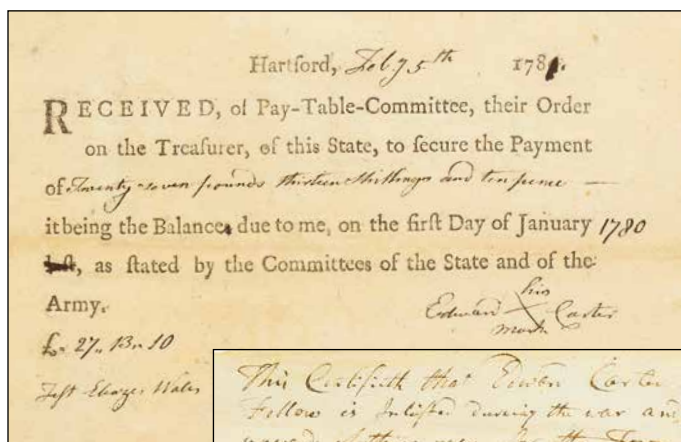 Hartford, Feby 5th 1781.
RECEIVED, of Pay-Table-Committee, their Order
on the Treaſurer, of this State, to ſecure the Payment
of Twenty seven pounds thirteen shillings and ten pence —
it being the Balance due to me, on the firſt Day of January 1780
laſt, as ſtated by the Committees of the State and of the
Army.
his
Edward Carter
mark
£27,, 13,, 10
Test Wales
This Certifieth that Carter
Fellow is Inlisted during the war and